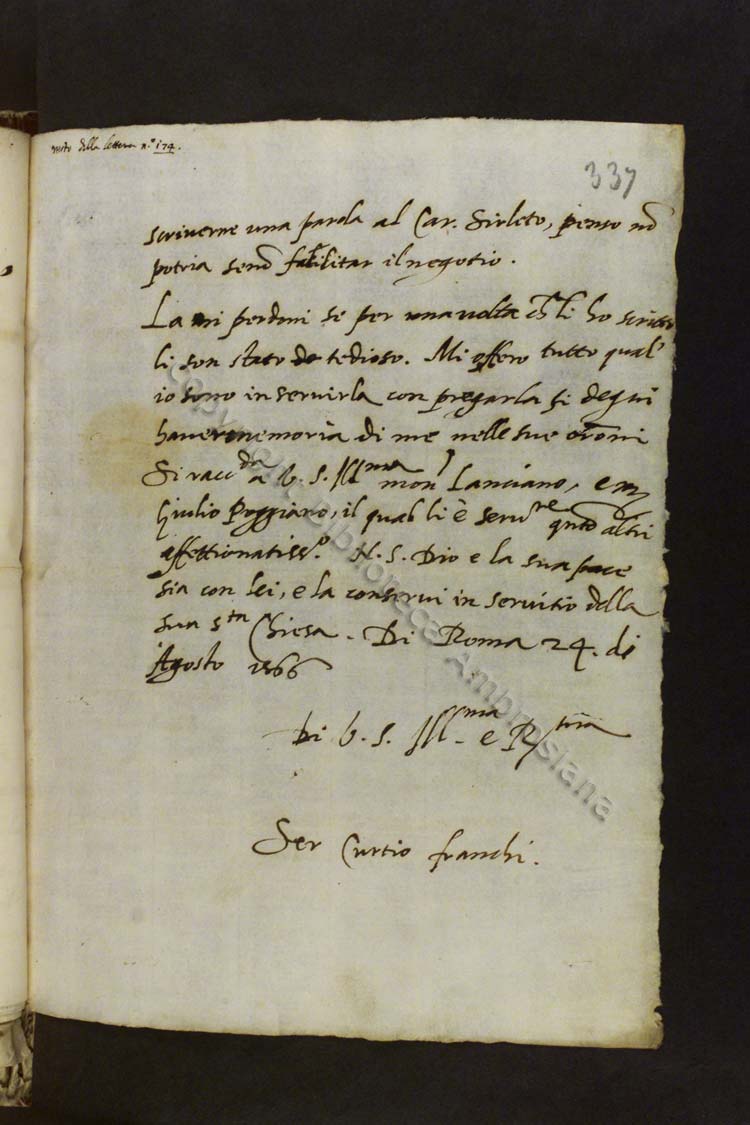 resto della lettera n.° 174.
337
scriverne una parola al Car. Sirleto, penso nō
potria senō facilitar il negotio.
La mi perdoni se per una volta ch li ho scritto
li son stato de tedioso. Mi offero tutto qual'
io sono in servirla con pregarla si degni
haver memoria di me nelle sue orōni
Si raccda a V. S. Illma mon Lanciano, e
Giulio Poggiano, il qual li è servre qnto altri
affettionatisso. N. S. Dio e la sua pace
sia con lei, e la conservi in servitio della
sua sta Chiesa. Di Roma 24. di
Agosto 1566
Di V. S. Illma e R
Ser Curtio franchi.
copyright Biblioteca Ambrosiana